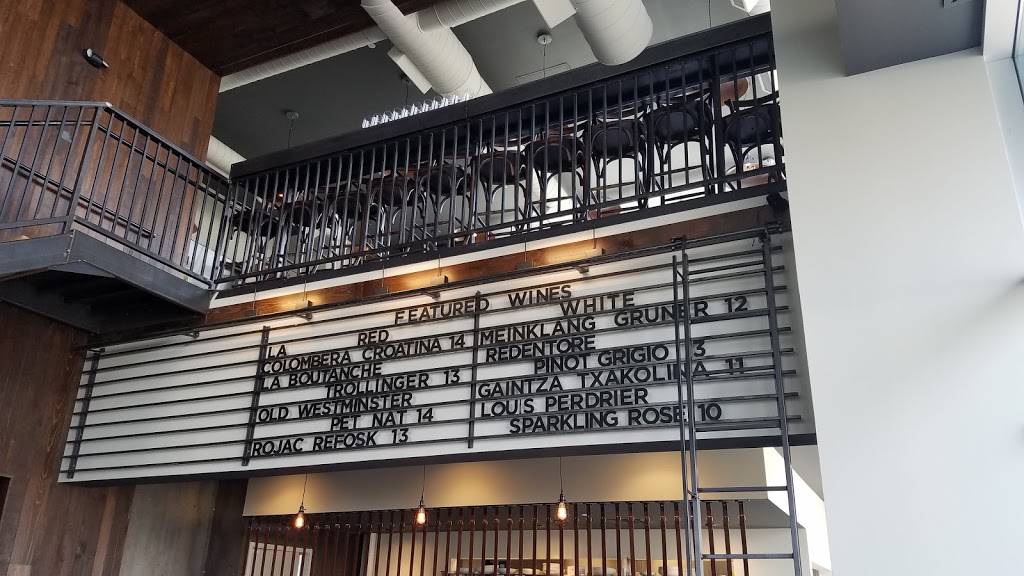 FEATURED WINES
RED
LA
COLOMBERA CROATINA 14
LA BOUTANCHE
TROLLINGER 13
OLD WESTMINSTER
PET NAT 14
ROJAC REFOSK 13
WHITE
MEINKLANG GRUNER 12
REDENTORE
PINOT GRIGIO 13
GAINTZA TXAKOLINA 11
LOUIS PERDRIER
SPARKLING ROSE 10